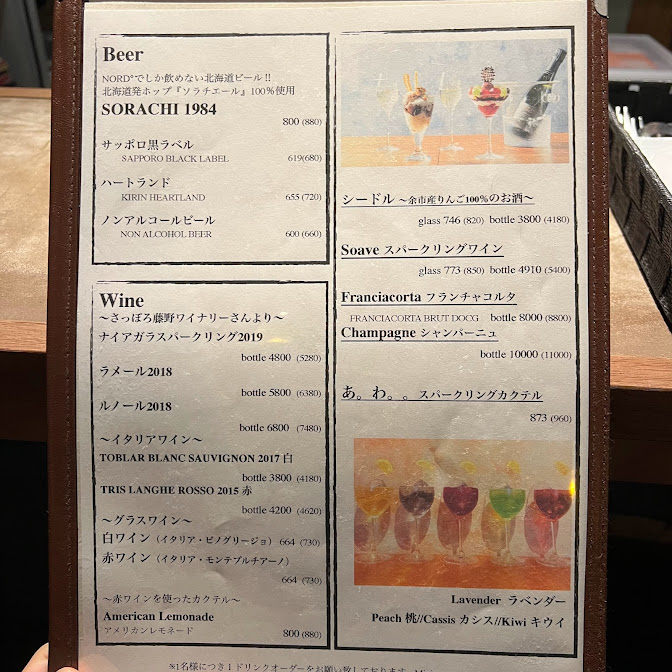 Beer
NORD°でしか飲めない北海道ビール!!
北海道発ホップ『ソラチエール』100%使用
SORACHI 1984
800 (880)
サッポロ黒ラベル
SAPPORO BLACK LABEL 619(680)
ハートランド
KIRIN HEARTLAND 655 (720)
ノンアルコールビール
NON ALCOHOL BEER 600 (660)
Wine
〜さっぽろ藤野ワイナリーさんより〜
ナイアガラスパークリング2019
bottle 4800 (5280)
ラメール2018
bottle 5800 (6380)
ルノール2018
bottle 6800 (7480)
〜イタリアワイン〜
TOBLAR BLANC SAUVIGNON 2017 白
bottle 3800 (4180)
TRIS LANGHE ROSSO 2015 赤
bottle 4200 (4620)
〜グラスワイン〜
白ワイン（イタリア・ピノグリージョ）664 (730)
赤ワイン（イタリア・モンテプルチアーノ）
664 (730)
〜赤ワインを使ったカクテル〜
American Lemonade
アメリカンレモネード 800 (880)
シードル 〜余市産りんご100%のお酒〜
glass 746 (820) bottle 3800 (4180)
Soave スパークリングワイン
glass 773 (850) bottle 4910 (5400)
Franciacorta フランチャコルタ
FRANCIACORTA BRUT DOCG bottle 8000 (8800)
Champagne シャンパーニュ
bottle 10000 (11000)
あ。わ。。スパークリングカクテル
873 (960)
Lavender ラベンダー
Peach 桃//Cassis カシス//Kiwi キウイ
※1名様につき1ドリンクオーダーをお願い致しております。